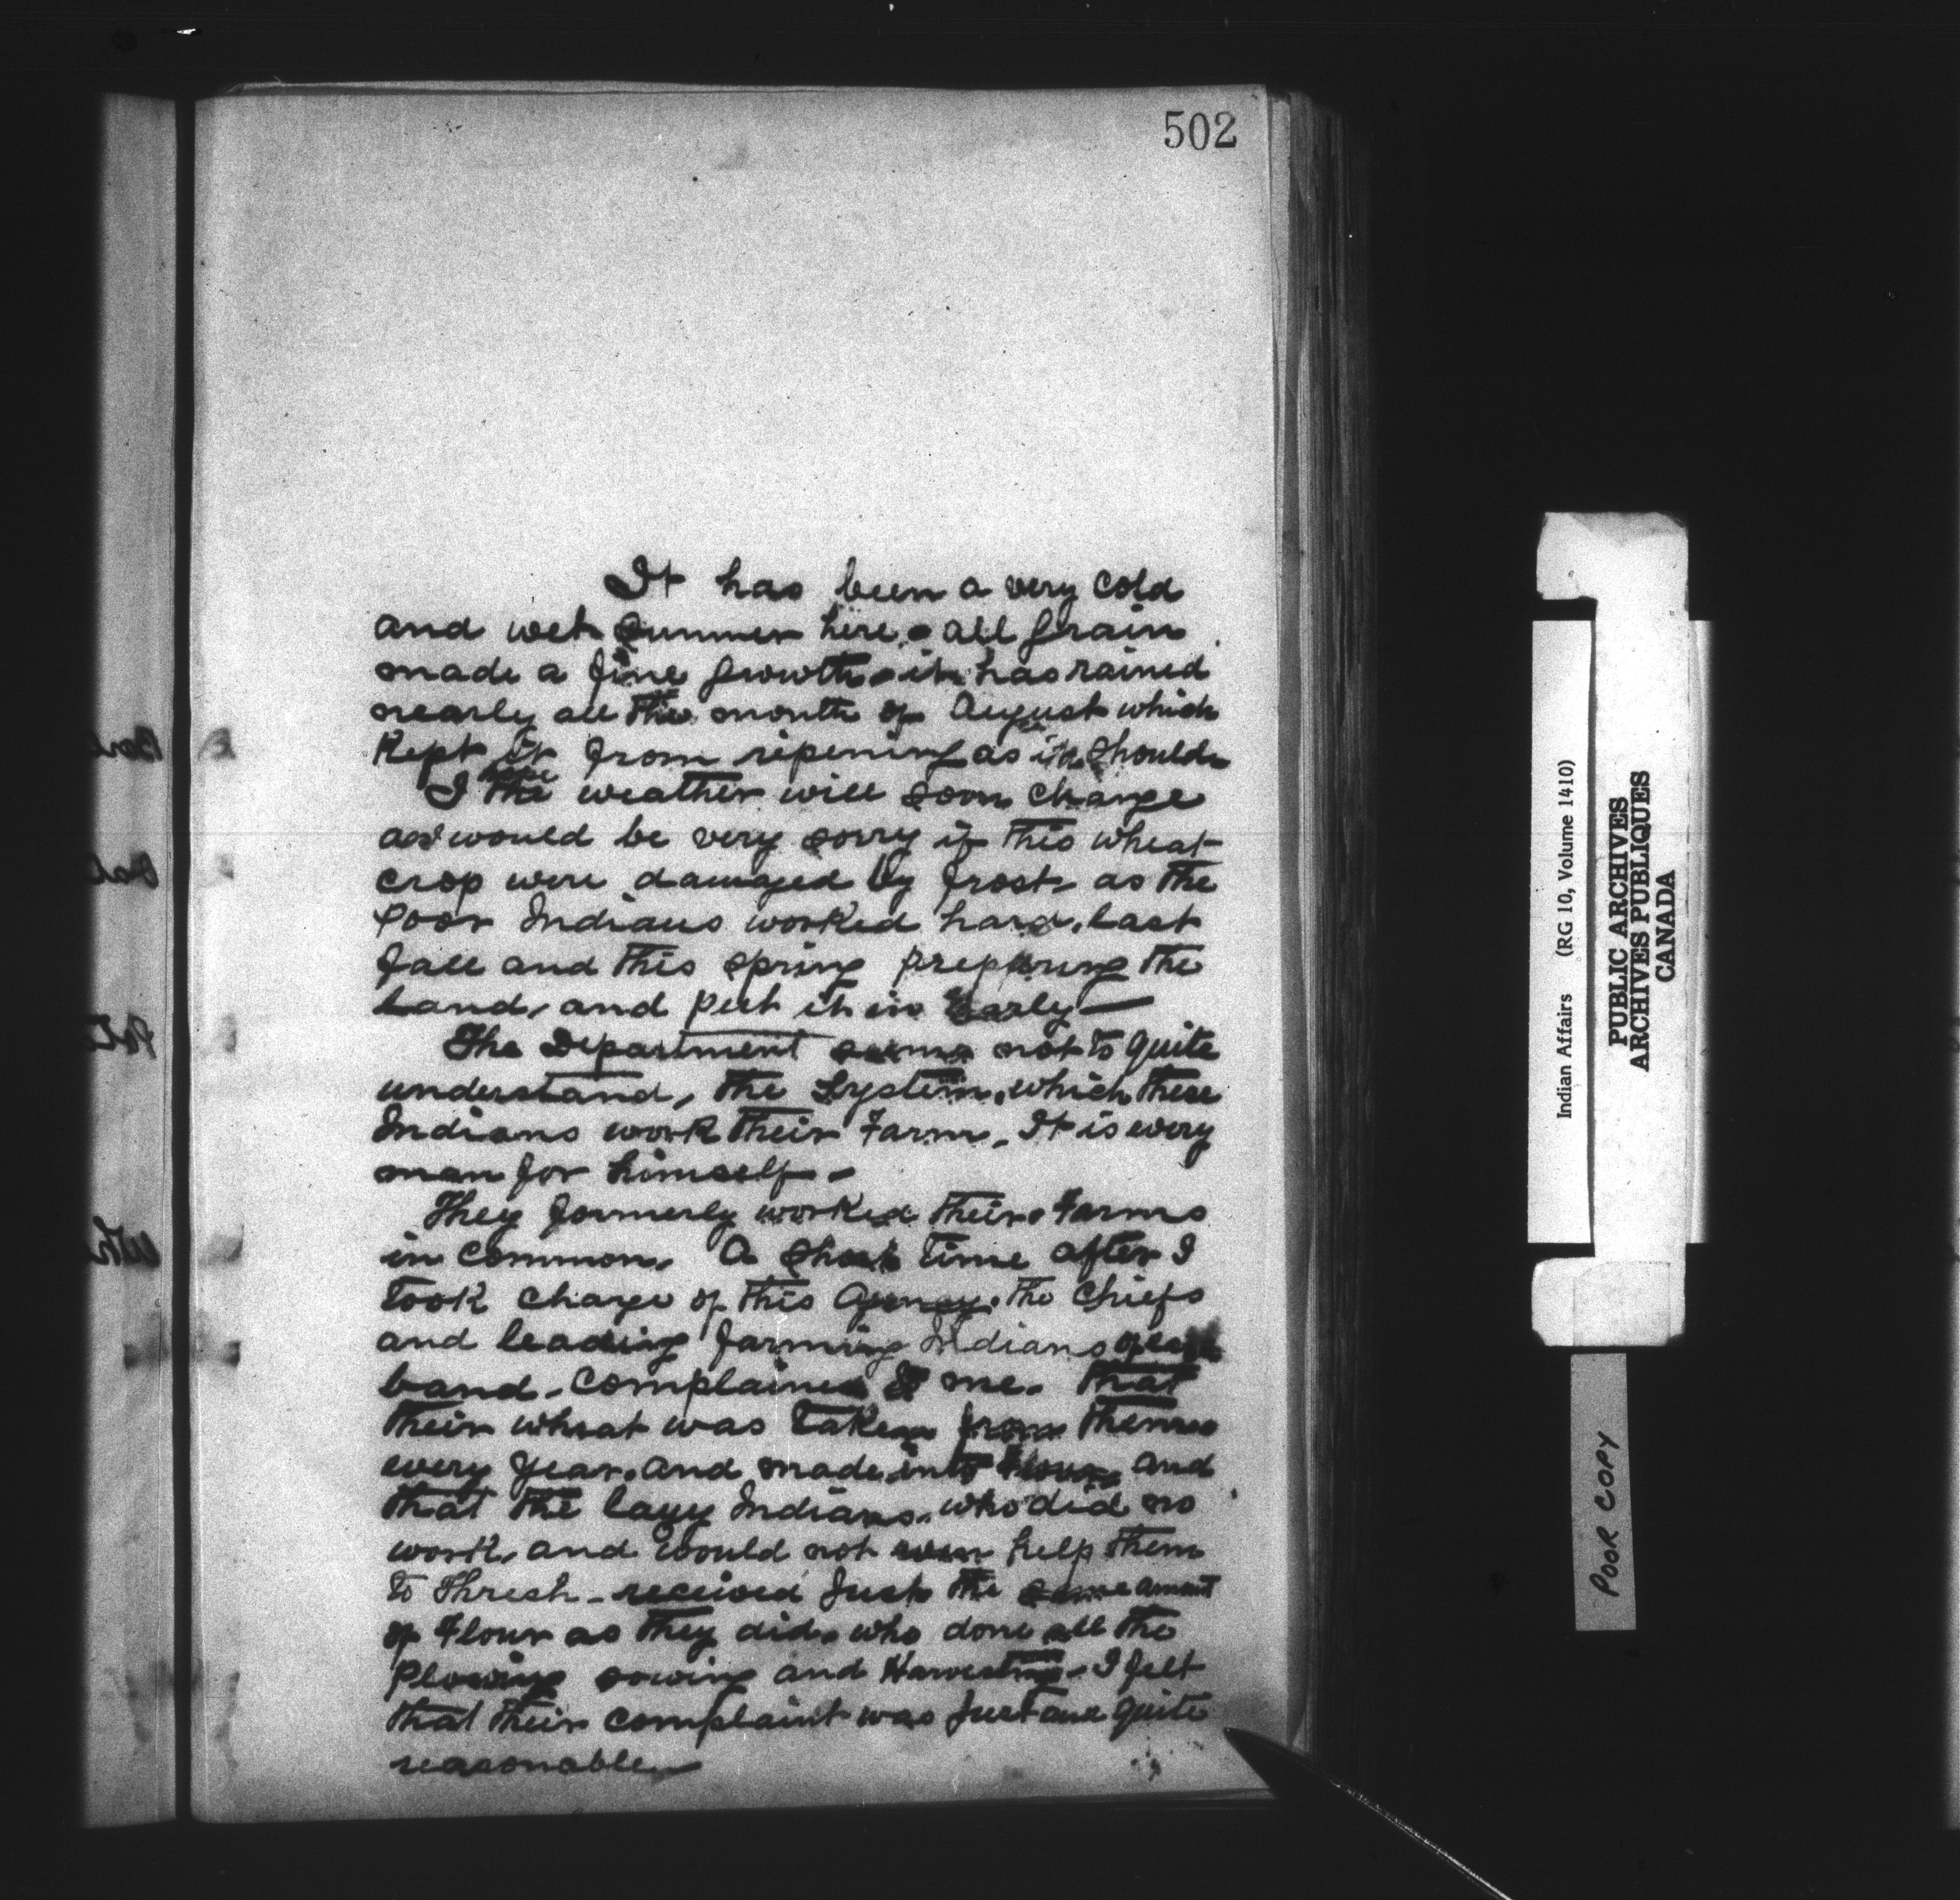 502
It has been a very cold
and wet summer here, all grain
made a fine growth, it has rained
nearly all the month of August which
Kept it from ripening as it should
I hope the weather will soon change
as I would be very sorry if this wheat
crop were damaged by frost as the
Poor Indians worked hard, last
fall and this spring preparing the
Land, and put it in Early—
The Department seems not to quite
understand, the System, which these
Indians work their Farm, It is every
man for himself-
They formerly worked their Farms
in common. A Short time after I
took charge of this Agency, the Chiefs
and leading farming Indians of each
band, complained to me, that
their wheat was taken from them
every year, and made into Flour, and
that the lazy Indians, who did no
work, and would not even help them
to Thresh - received Just the same amount
of Flour as they did, who done all the
Plowing sowing and Harvesting - I felt
that their complaint was Just and quite
reasonable—
Indian Affairs (RG 10, Volume 1410)
PUBLIC ARCHIVES
ARCHIVES PUBLIQUES
CANADA
POOR COPY